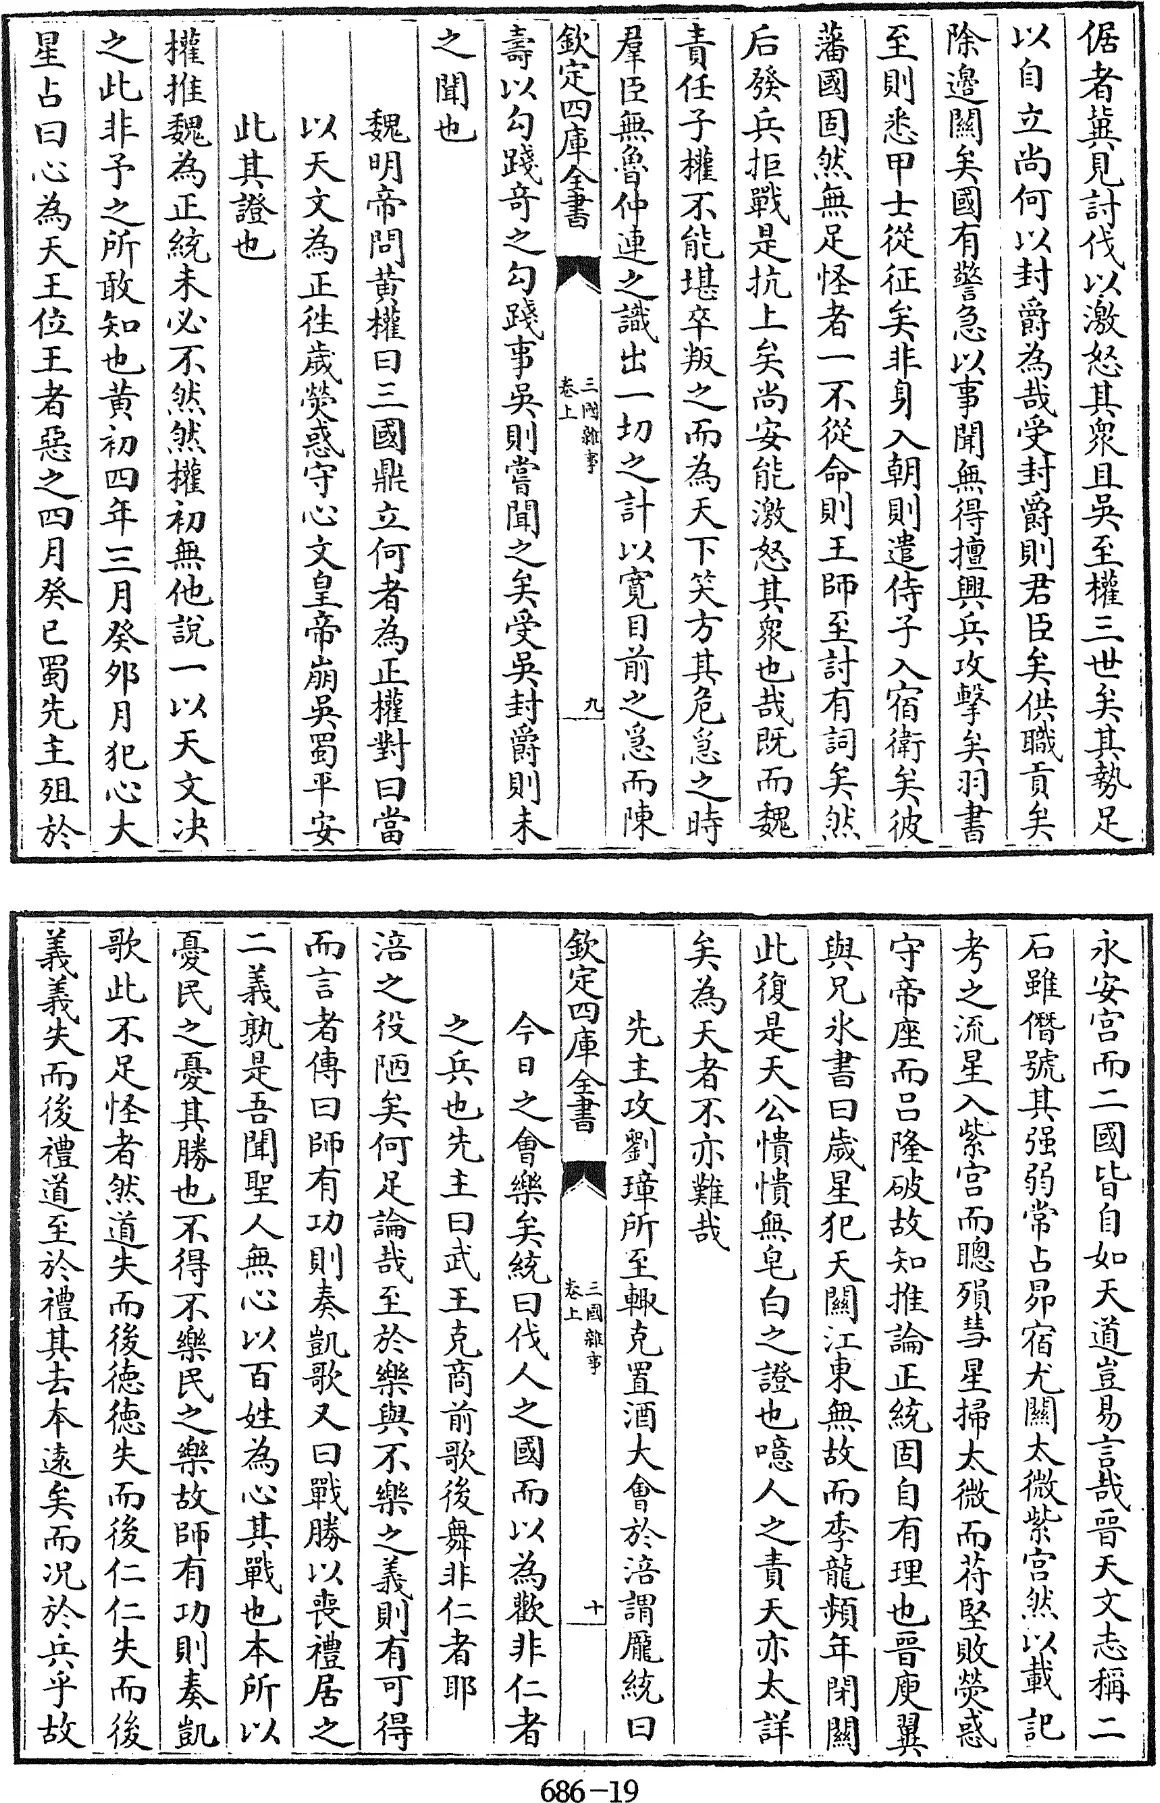 倨者冀見討伐以激怒其衆且吳至權三世矣其勢足
以自立尚何以封爵為哉受封爵則君臣矣供職貢矣
除邊關矣國有警急以事聞無得擅興兵攻擊矣羽書
至則悉甲士從征矣非身入朝則遣侍子入宿衛矣彼
藩國固然無足怪者一不從命則王師至討有詞矣然
后發兵拒戰是抗上矣尚安能激怒其衆也哉既而魏
責任子權不能堪卒叛之而為天下笑方其危急之時
羣臣無魯仲連之識出一切之計以寛目前之急而陳
欽定四庫全書
三國雜事
卷上
九
壽以勾踐奇之勾踐事吳則嘗聞之矣受吳封爵則未
之聞也
魏明帝問黄權曰三國鼎立何者為正權對曰當
以天文為正徃歲熒惑守心文皇帝崩吳蜀平安
此其證也
權推魏為正統未必不然然權初無他說一以天文决
之此非予之所敢知也黄初四年三月癸夘月犯心大
星占曰心為天王位王者惡之四月癸巳蜀先主殂於
永安宫而二國皆自如天道豈易言哉晉天文志稱二
石雖僭號其强弱常占昴宿尤關太微紫宫然以載記
考之流星入紫宫而聰殞彗星掃太微而苻堅敗熒惑
守帝座而吕隆破故知推論正統固自有理也晉庾翼
與兄氷書曰歲星犯天關江東無故而季龍頻年閉關
此復是天公憒憒無皂白之證也噫人之責天亦太詳
矣為天者不亦難哉
先主攻劉璋所至輙克置酒大會於涪謂龎統曰
欽定四庫全書
三國雜事
卷上
十
今日之會樂矣統曰伐人之國而以為歡非仁者
之兵也先主曰武王克商前歌後舞非仁者耶
涪之役陋矣何足論哉至於樂與不樂之義則有可得
而言者傳曰師有功則奏凱歌又曰戰勝以喪禮居之
二義孰是吾聞聖人無心以百姓為心其戰也本所以
憂民之憂其勝也不得不樂民之樂故師有功則奏凱
歌此不足怪者然道失而後徳徳失而後仁仁失而後
義義失而後禮道至於禮其去本逺矣而况於兵乎故
686-19